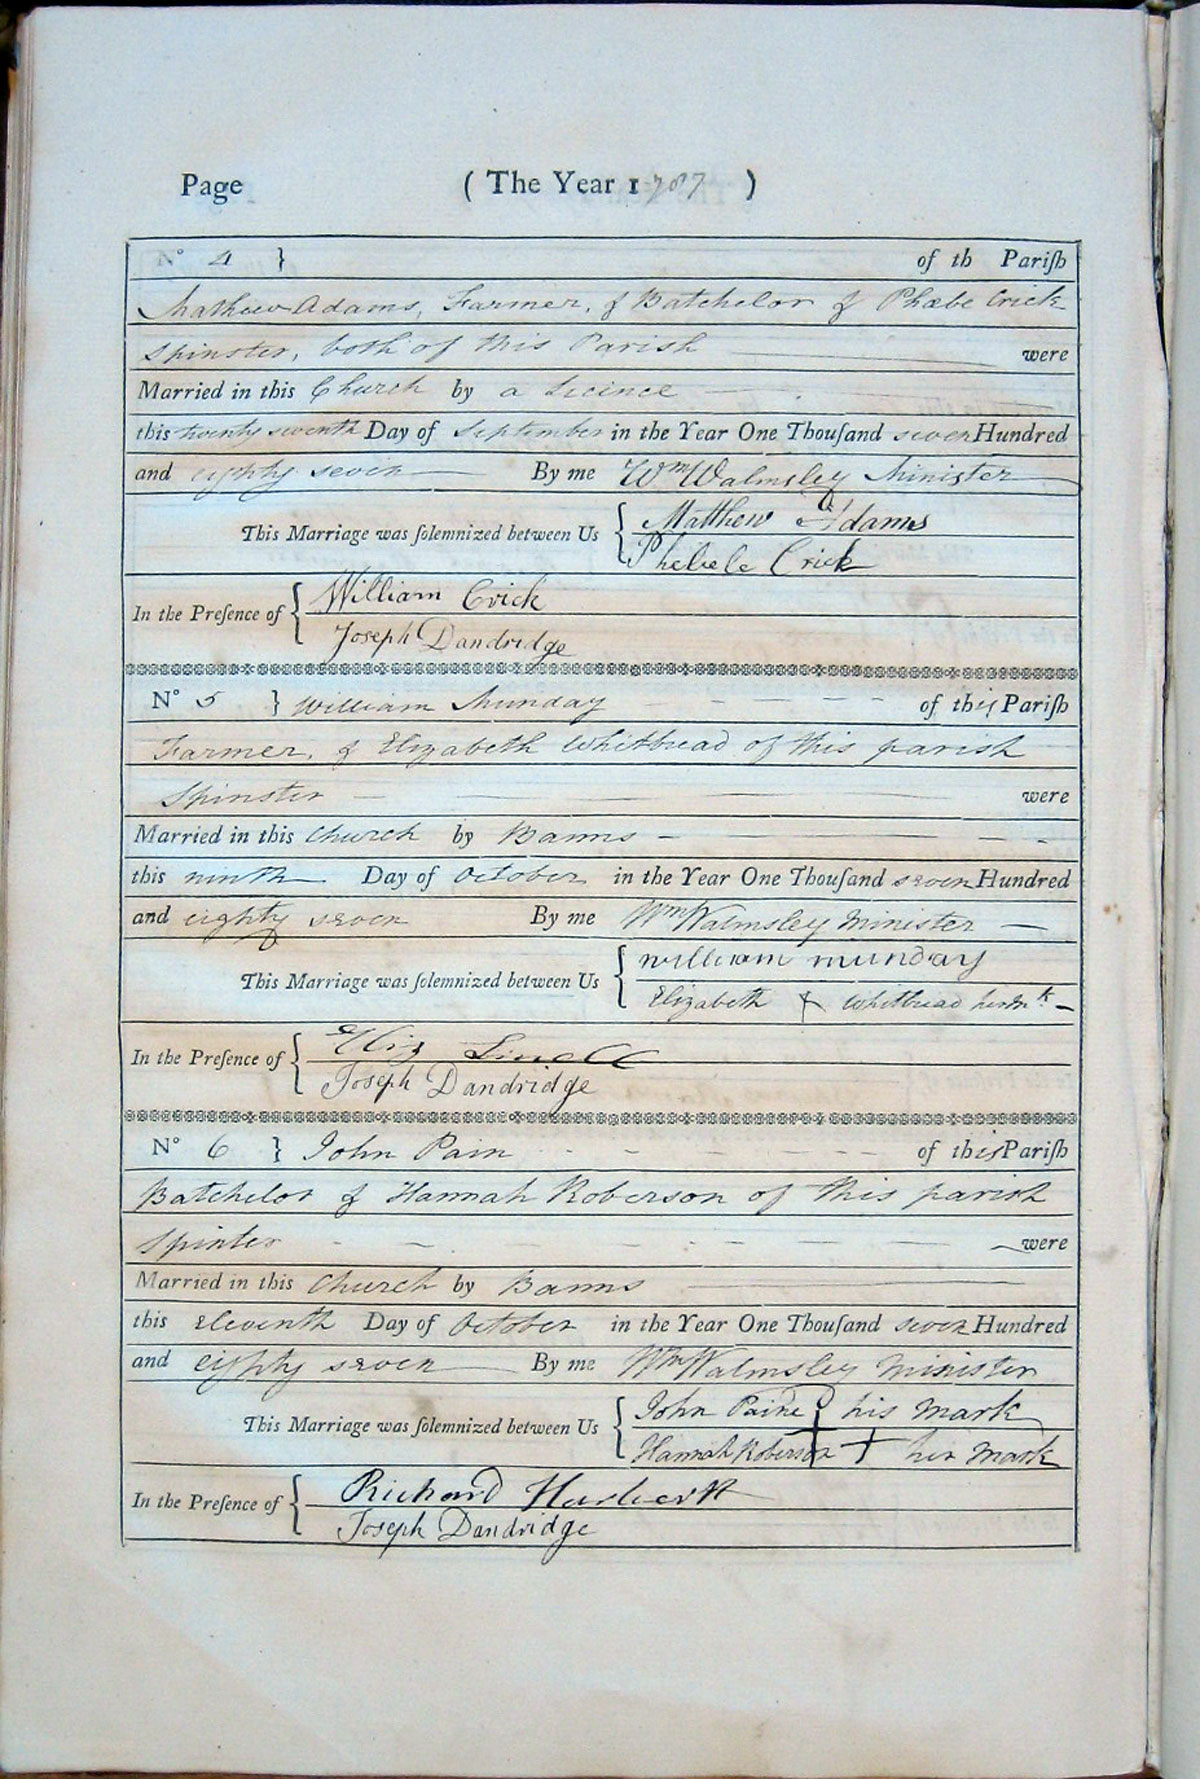 Page ( The Year 1787 )
No 4 } of th Pariſh
Mathew Adams, Farmer, & Batchelor & Phœbe Crick
Spinster, both of this Parish were
Married in this Church by a Licince
this twenty seventh Day of September in the Year One Thouſand seven Hundred
and eighty seven By me Wm Walmsley Minister
This Marriage was ſolemnized between Us { Matthew Adams
Phebele Crick
In the Preſence of { William Crick
Joseph Dandridge
No 5 } William Munday of this Pariſh
Farmer, & Elizabeth Whitbread of this parish
Spinster were
Married in this Church by Banns
this ninth Day of October in the Year One Thouſand seven Hundred
and eighty seven By me Wm Walmsley Minister
This Marriage was ſolemnized between Us { william munday
Elizabeth + Whitbread her mk
In the Preſence of { Eliz Linell
Joseph Dandridge
No 6 } John Pain of this Pariſh
Batchelor & Hannah Roberson of this parish
Spinter were
Married in this Church by Banns
this Eleventh Day of October in the Year One Thouſand seven Hundred
and eighty seven By me Wm Walmsley Minister
This Marriage was ſolemnized between Us { John Paine + his mark
Hannah Roberson + her mark
In the Preſence of { Richard
Joseph Dandridge